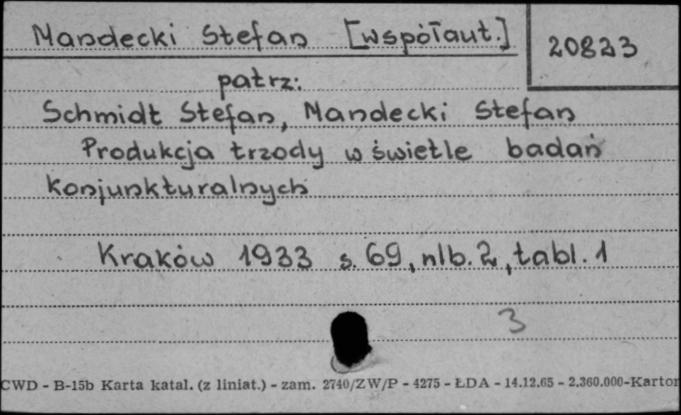 Mandecki Stefan [współaut.]
20823
patrz:
Schmidt Stefan, Mandecki Stefan
Produkcja trzody w świetle badań
konjunkturalnych
Kraków 1933 s. 69, nlb. 2, tabl. 1
3
CWD - B-15b Karta katal. (z liniat.) - zam. 2740/ZW/P - 4275 - ŁDA - 14.12.65 - 2.360.000-Karton